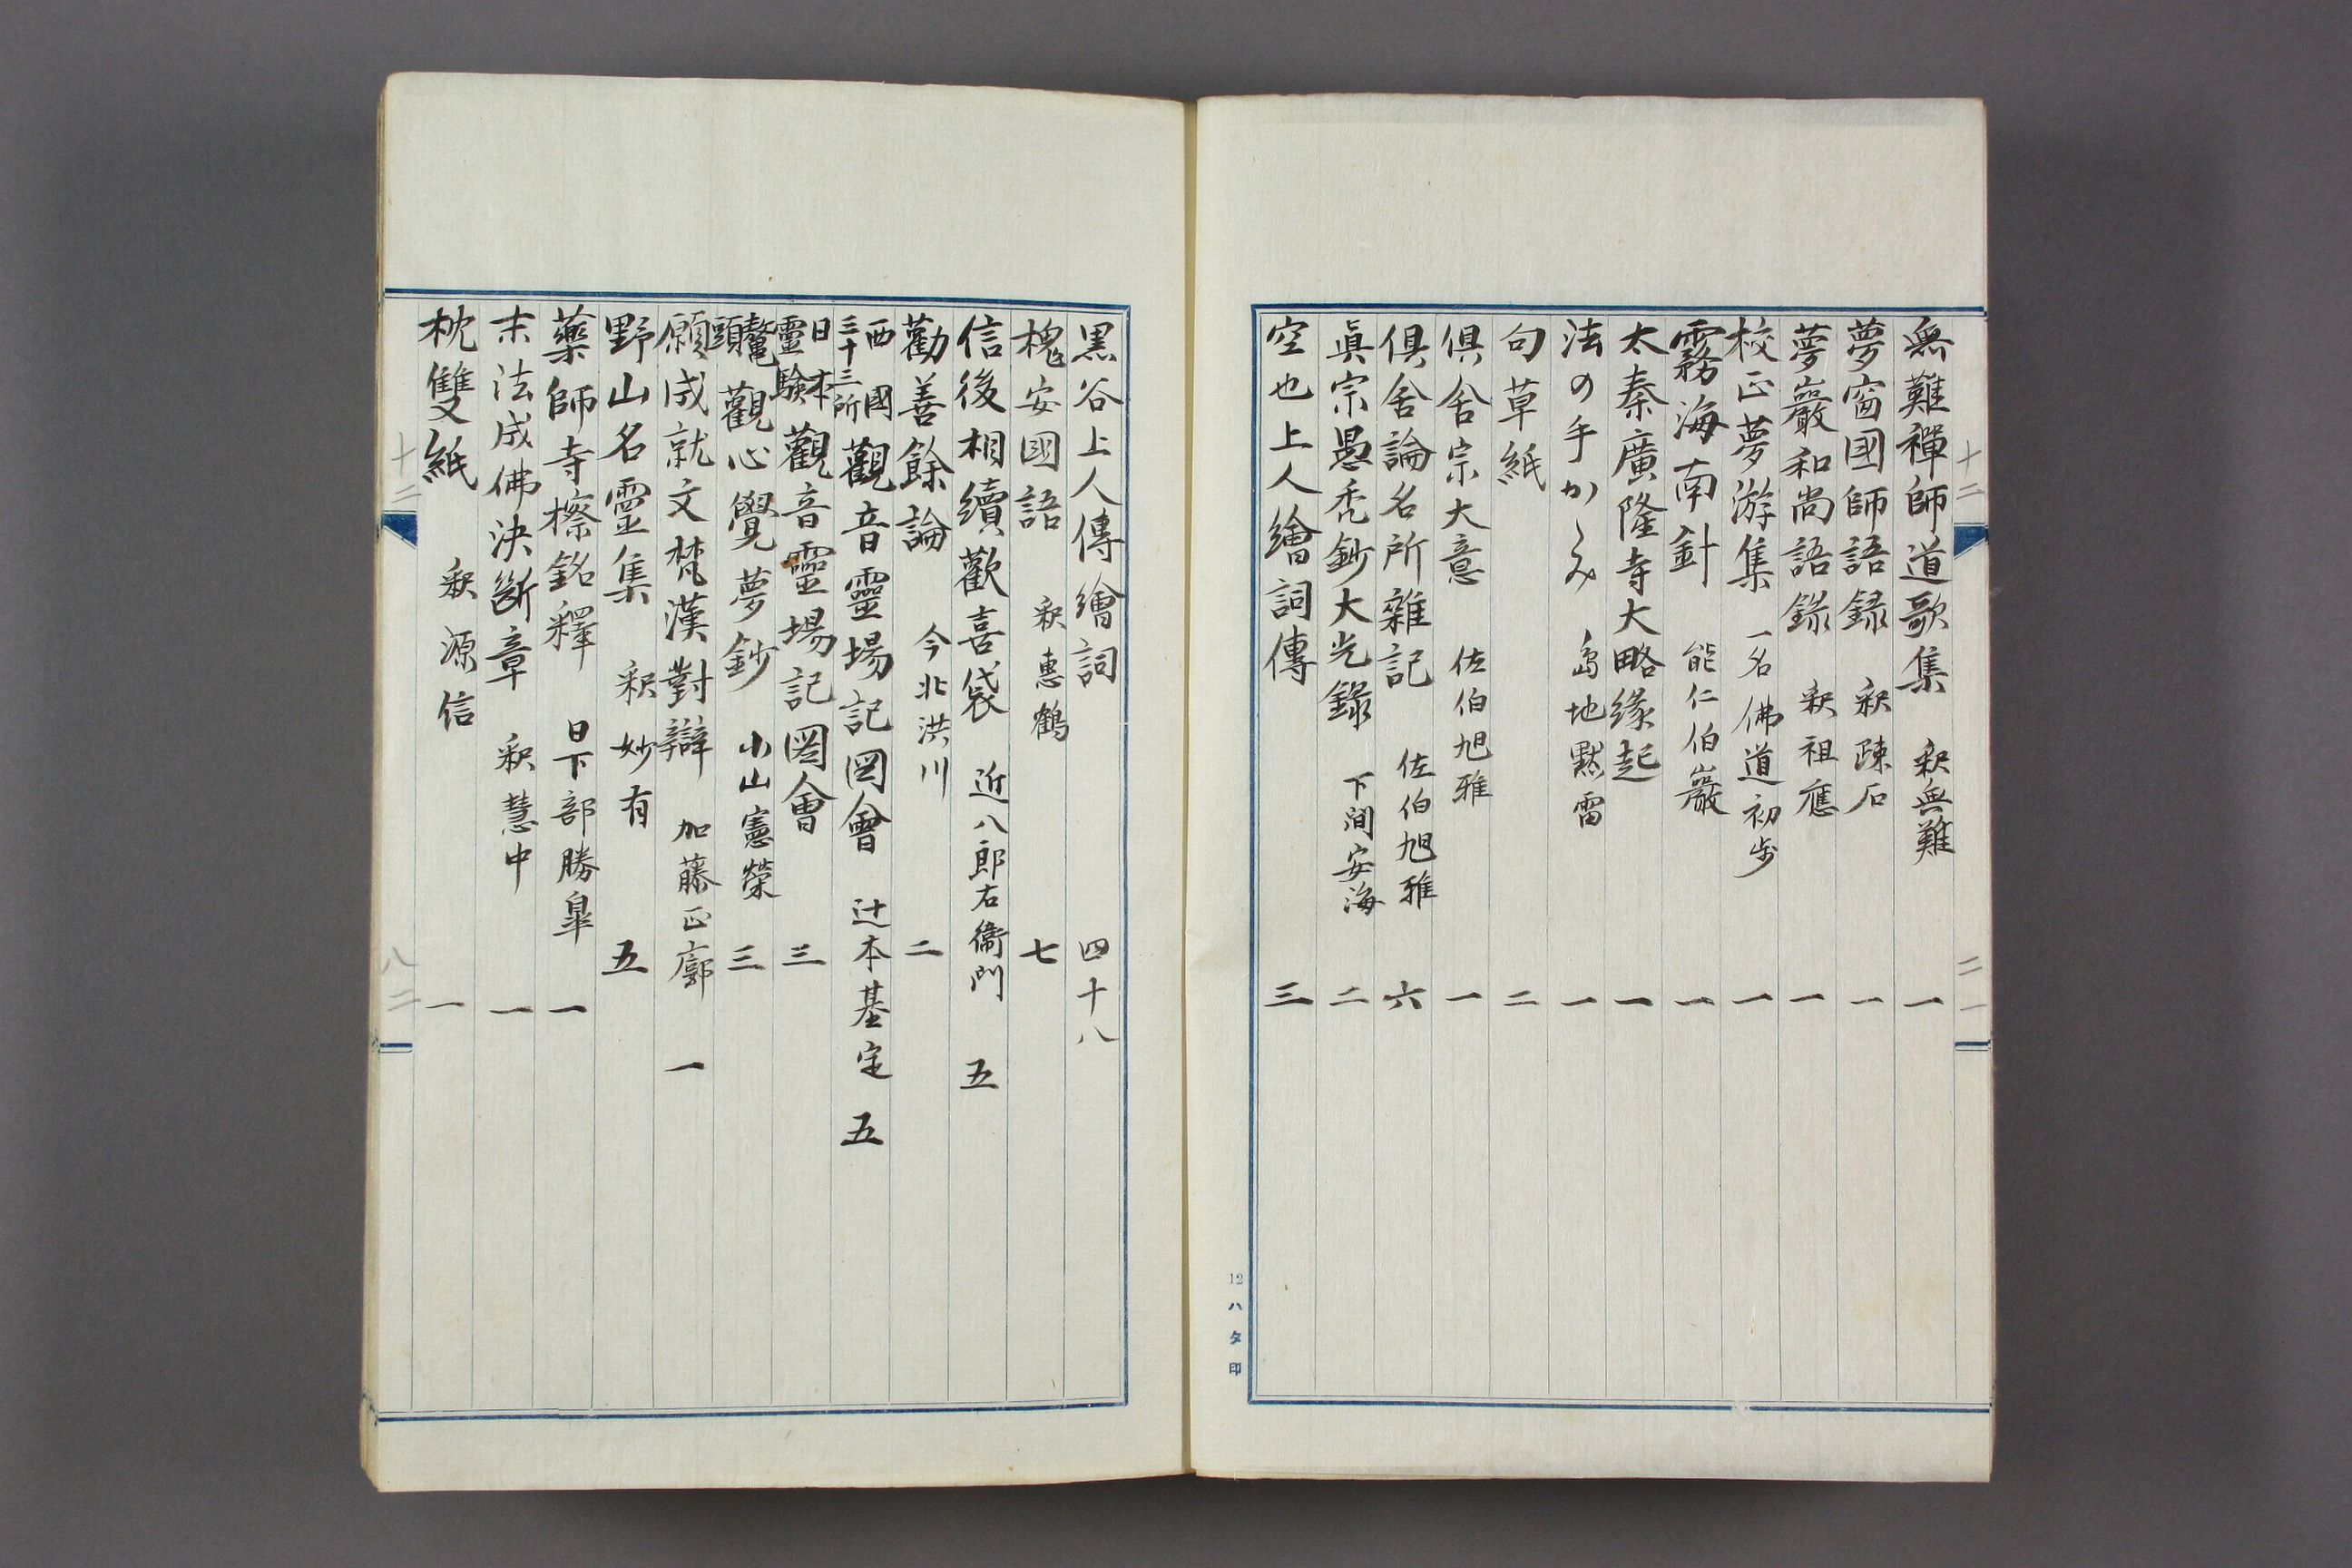 無難禪師道歌集 釈無難 一
夢窗國師語録 釈疎石 一
夢巖和尚語録 釈祖應 一
校正夢游集 一名佛道初歩 一
霧海南針 能仁伯巖 一
太秦廣隆寺大略縁起 一
法の手かゝみ 島地黙雷 一
句草紙 二
倶舎宗大意 佐伯旭雅 一
倶舎論名所雜記 佐伯旭雅 六
眞宗愚禿鈔大光錄 下間安海 二
空也上人繪詞傳 三
十二
二一
12ハタ印
黒谷上人傳繪詞 四十八
槐安國語 釈惠鶴 七
信後相續歡喜袋 近八郎右衞門 五
勸善餘論 今北洪川 二
西國三十三所觀音靈場記図會 辻本基定 五
日本靈験觀音靈場記圖會 三
鼇頭觀心覺夢鈔 小山憲榮 三
願成就文梵漢對辯 加藤正廓 一
野山名靈集 釈妙有 五
藥師寺檫銘釋 日下部勝皐 一
末法成佛決斷章 釈慧中 一
枕雙紙 釈源信 一
十二
八二